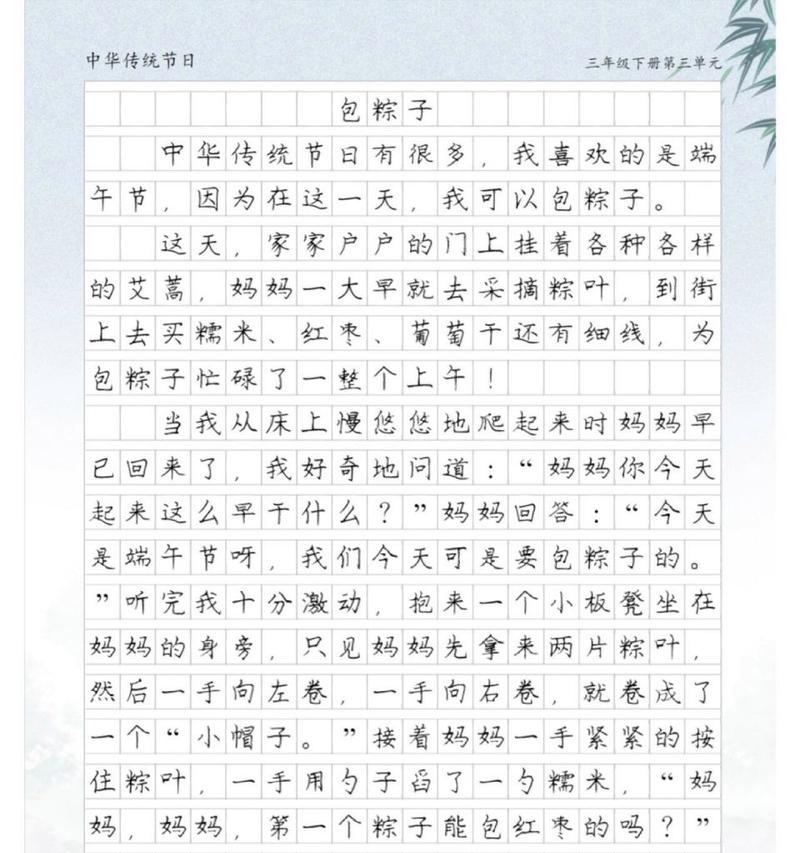 中华传统节日
三年级下册第三单元
包粽子
中华传统节日有很多，我喜欢的是端
午节，因为在这一天，我可以包粽子。
这天，家家户户的门上挂着各种各样
的艾蒿，妈妈一大早就去采摘粽叶，到街
上去买糯米、红枣、葡萄干还有细线，为
包粽子忙碌了一整个上午！
当我从床上慢悠悠地爬起来时妈妈早
已回来了，我好奇地问道：“妈妈你今天
起来这么早干什么？”妈妈回答：“今天
是端午节呀，我们今天可是要包粽子的。
”听完我十分激动，抱来一个小板凳坐在
妈妈的身旁，只见妈妈先拿来两片粽叶，
然后一手向左卷，一手向右卷，就卷成了
一个“小帽子。”接着妈妈一手紧紧的按
住粽叶，一手用勺子舀了一勺糯米，“妈
妈，妈妈，第一个粽子能包红枣的吗？”